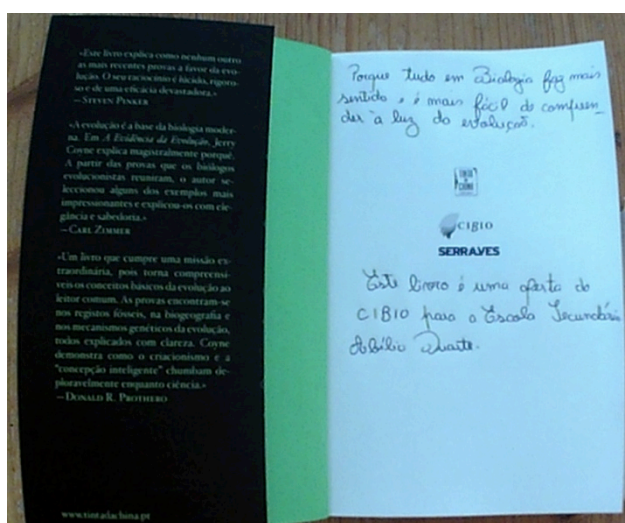 «Este livro explica como nenhum outro
as mais recentes provas a favor da evo-
lução. O seu raciocínio é lúcido, rigoro-
so e de uma eficácia devastadora.»
— STEVEN PINKER
«A evolução é a base da biologia moder-
na. Em A Evidência da Evolução, Jerry
Coyne explica magistralmente porquê.
A partir das provas que os biólogos
evolucionistas reuniram, o autor se-
leccionou alguns dos exemplos mais
impressionantes e explicou-os com ele-
gância e sabedoria.»
— CARL ZIMMER
«Um livro que cumpre uma missão ex-
traordinária, pois torna compreensí-
veis os conceitos básicos da evolução ao
leitor comum. As provas encontram-se
nos registos fósseis, na biogeografia e
nos mecanismos genéticos da evolução,
todos explicados com clareza. Coyne
demonstra como o criacionismo e a
"concepção inteligente" chumbam de-
ploravelmente enquanto ciência.»
— DONALD R. PROTHERO
www.tintadachina.pt
Porque tudo em Biologia faz mais
sentido e é mais fácil de compreen-
der à luz da evolução.
TINTA
DA
CHINA
CIBIO
SERRALVES
Este livro é uma oferta do
CIBIO para a Escola Secundária
Abílio Duarte.